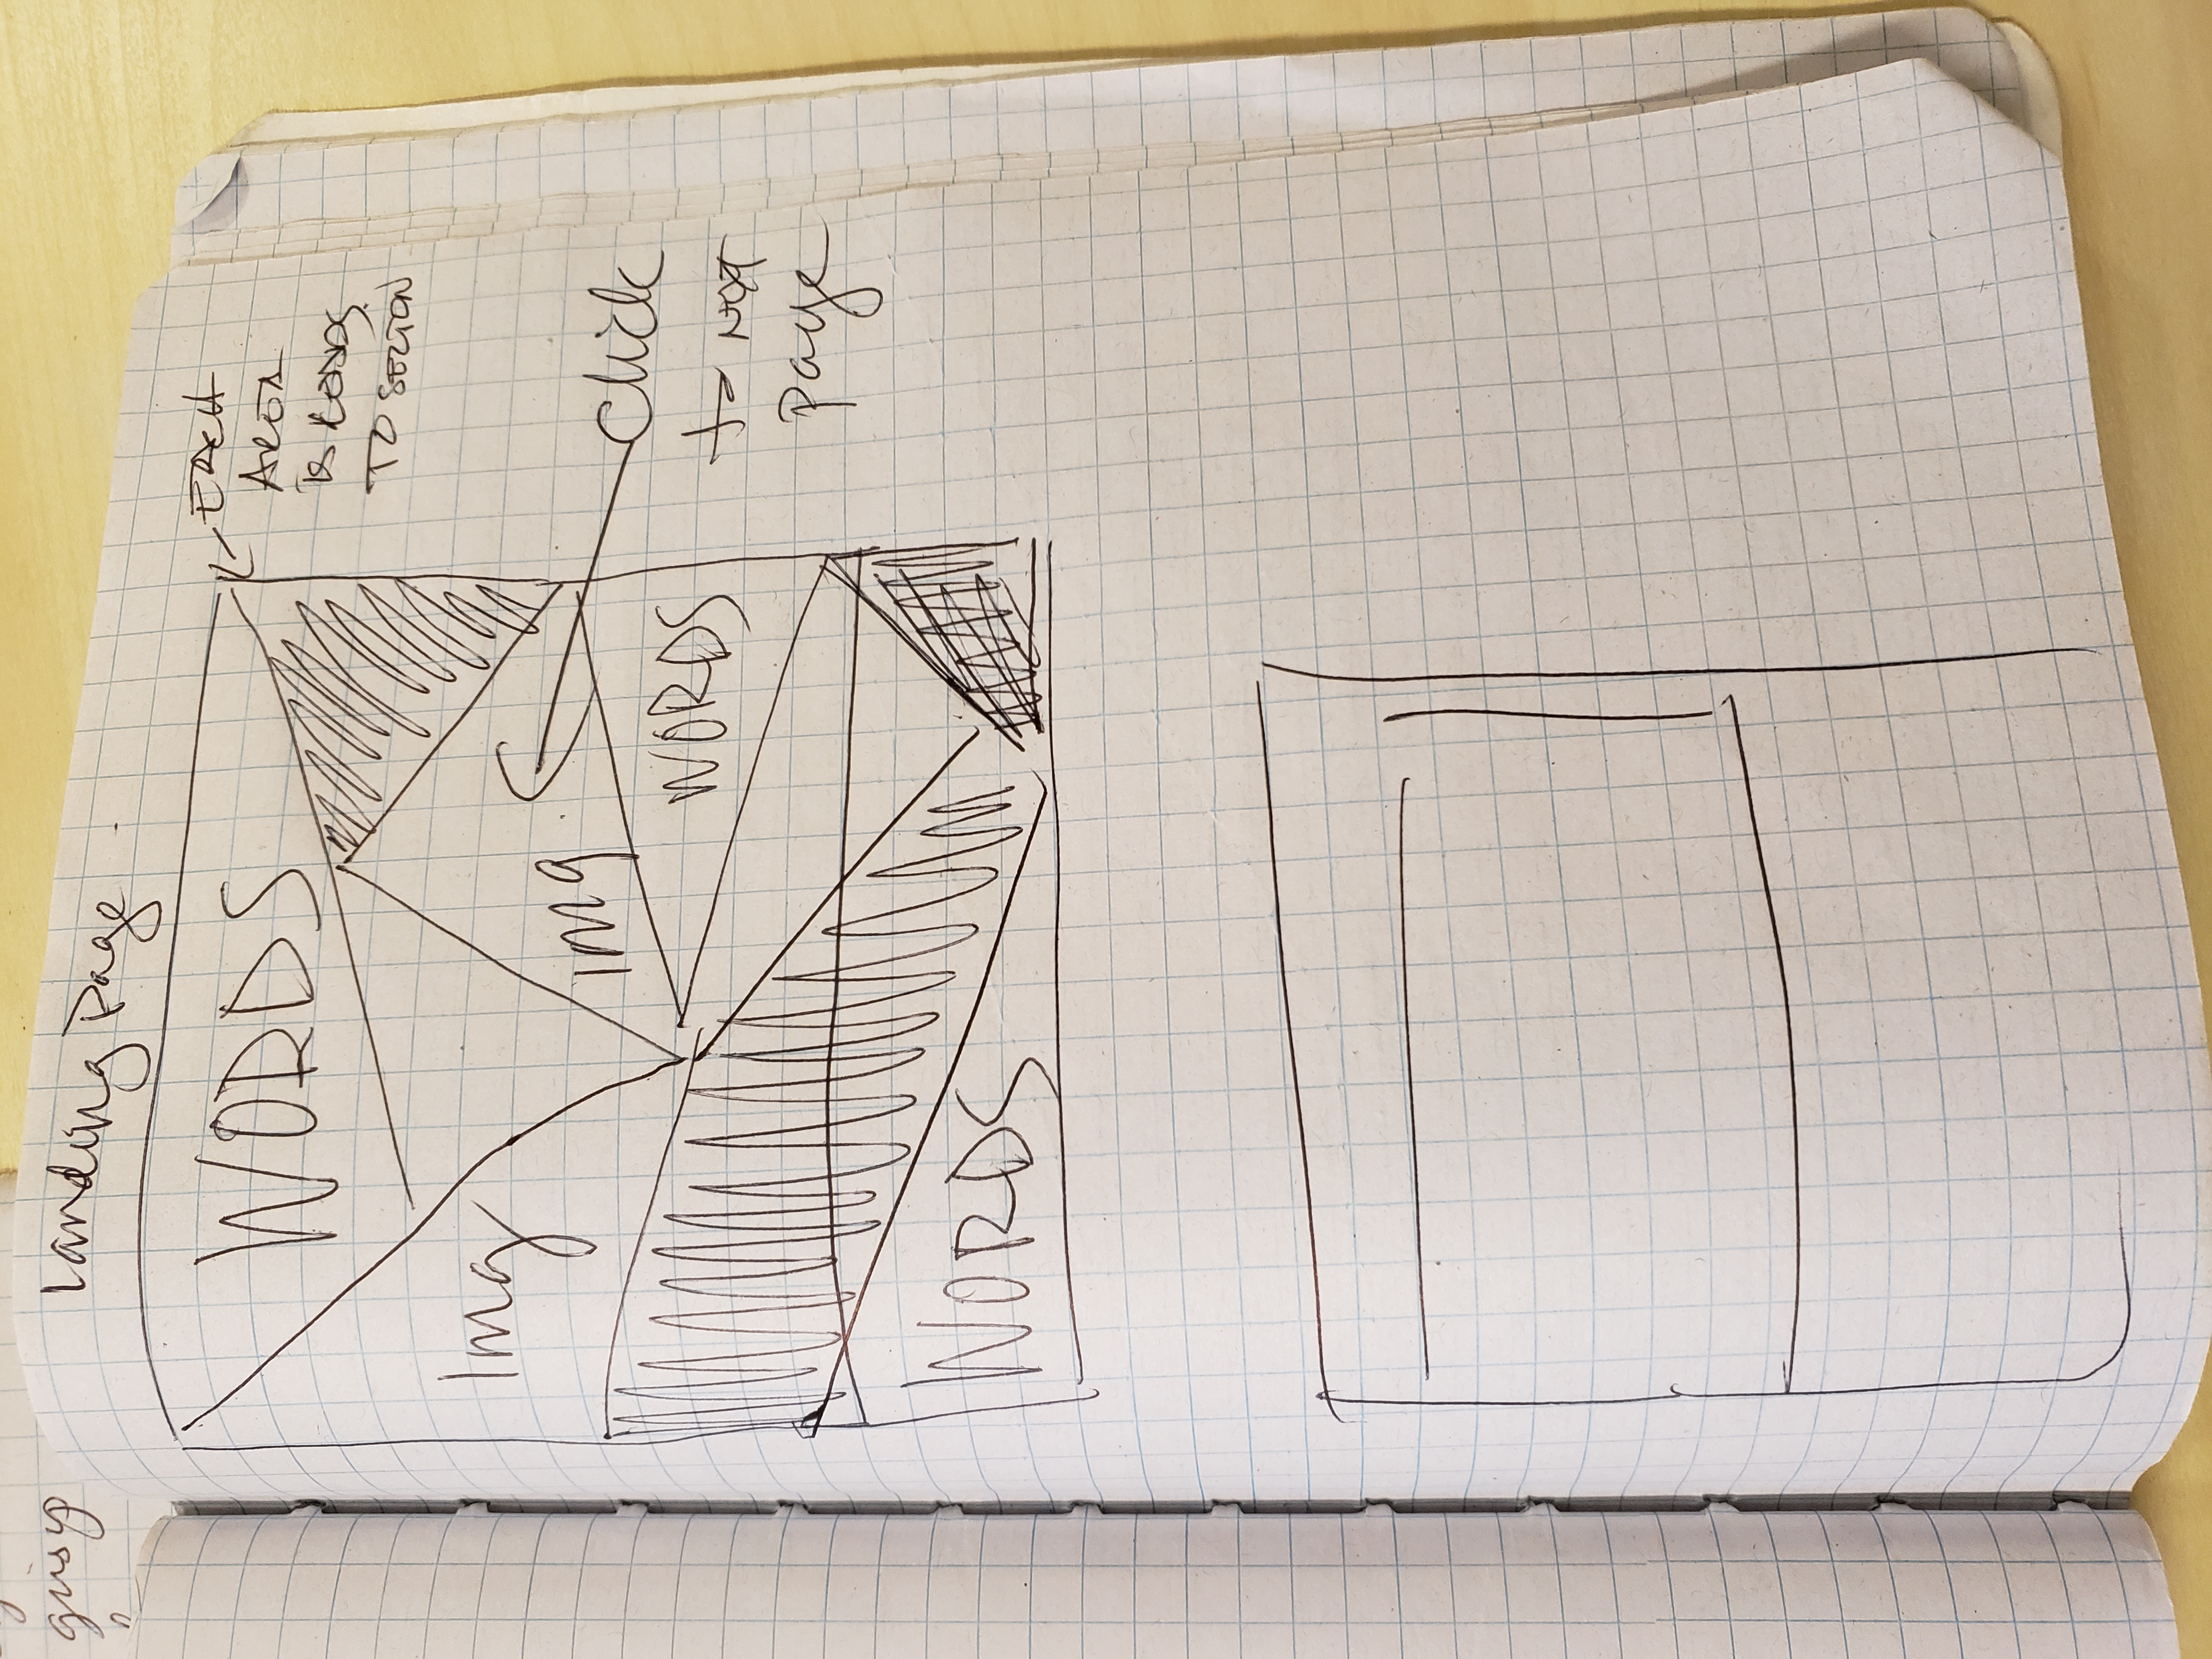 gussy
Landing Page
WORDS
Img
Img
WORDS
WORDS
EACH
AREA
IS
TO SECTION
Click
to NEXT
Page